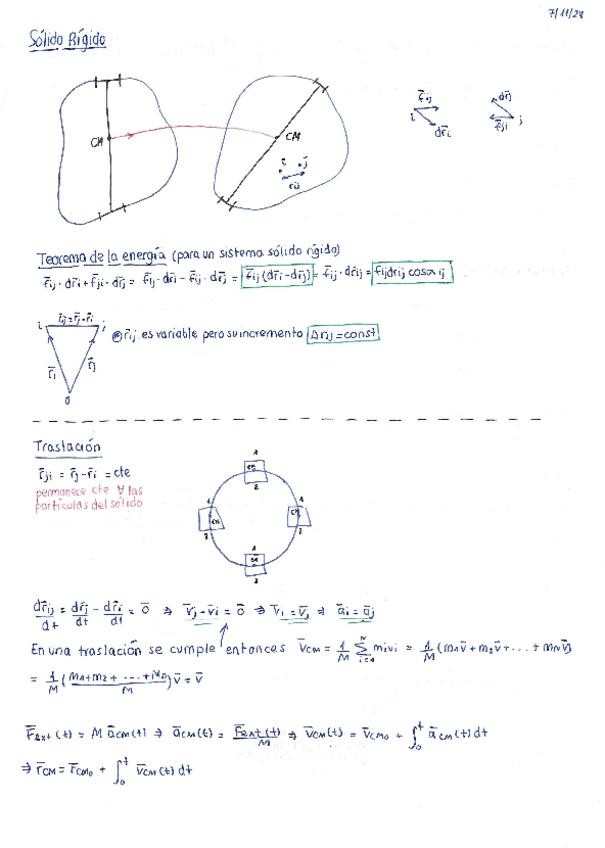 7/11/24
Sólido Rígido
CM
CM
i j
r̄ij
f̄ij
i
dr̄i
dr̄j
f̄ji
j
Teorema de la energía (para un sistema sólido rígido)
f̄ij · dr̄i + f̄ji · dr̄j = f̄ij · dr̄i - f̄ij · dr̄j = f̄ij (dr̄i - dr̄j) = f̄ij · dr̄ij = fij drij cosα ij
i r̄ij = r̄j - r̄i j
r̄i r̄j
0
r̄ij es variable pero su incremento Δrij = const
Traslación
r̄ji = r̄j - r̄i = cte
permanece cte ∀ las
partículas del sólido
1
CM
2
1
CM
2
1
CM
2
1
CM
2
dr̄ij/dt = dr̄j/dt - dr̄i/dt = 0̄ ⇒ v̄j - v̄i = 0̄ ⇒ v̄i = v̄j ⇒ āi = āj
En una traslación se cumple entonces v̄CM = 1/M Σ i=1 N mivi = 1/M (m1v̄ + m2v̄ + ... + mNv̄)
= 1/M (m1+m2 + ... + ) v̄ = v̄
F̄ext (t) = M āCM(t) ⇒ āCM(t) = F̄ext(t)/M ⇒ v̄CM(t) = v̄CM0 + ∫0t āCM(t) dt
⇒ r̄CM = r̄CM0 + ∫0t v̄CM(t) dt